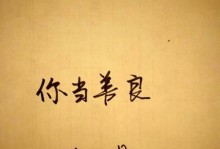 你当善良